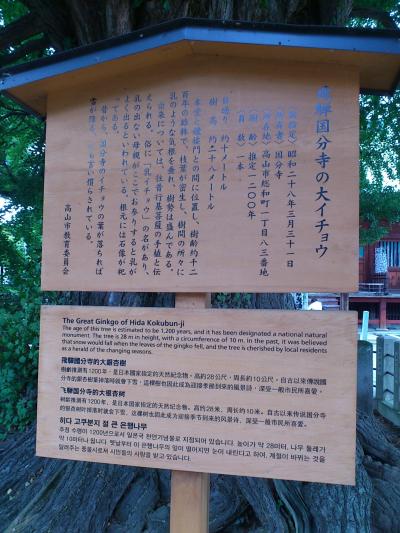 飛騨国分寺の大イチョウ
〈国指定〉昭和二十八年三月三十一日
〈所有者〉国分寺
〈所在地〉高山市総和町一丁目八三番地
〈樹齢〉推定一、二〇〇年
〈員数〉一本
目通り 約十メートル
樹高 約二十八メートル
本堂と鐘楼門との間に位置し、樹齢約千二
百年の雄株で、枝葉が密生し、樹間の所々に
乳のような気根を垂れ、樹勢は盛んである。
由来については、往昔行基菩薩の手植と伝
えられる。俗に「乳イチョウ」の名があり、
乳の出ない母親がここでお参りすると乳が
よく出るといわれている。根元には石像が祀
ってある。
昔から、国分寺のイチョウの葉が落ちれば
雪が降る、とも言い慣らされている。
高山市教育委員会
The Great Ginkgo of Hida Kokubun-ji
The age of this tree is estimated to be 1,200 years, and it has been designated a national natural
monument. The tree is 28 m in height, with a circumference of 10 m. In the past, it was believed
that snow would fall when the leaves of the gingko fell, and the tree is cherished by local residents
as a herald of the changing seasons.
飛驒國分寺的大銀杏樹
樹齡推測有1200年，是日本國家指定的天然紀念物。高約28公尺，周長約10公尺。自古以來傳說國
分寺的銀杏樹葉掉落時就會下雪，這棵樹也因此成為迎接季節到來的風景詩，深受一般市民所喜愛。
飞驒国分寺的大银杏树
树龄推测有1200年，是日本国家指定的天然纪念物。高约28米，周长约10米。自古以来传说国分寺
的银杏树叶掉落时就会下雪，这棵树也因此成为迎接季节到来的风景诗，深受一般市民所喜爱。
히다 고쿠분지 절 큰 은행나무
추정 수령이 1200년으로서 일본국 천연기념물로 지정되어 있습니다. 높이가 약 28미터, 나무 둘레가
약 10미터나 됩니다. 옛날부터 이 은행나무의 잎이 떨어지면 눈이 내린다고 하여, 계절이 바뀌는 것을
알려주는 풍물시로서 시민들의 사랑을 받고 있습니다.